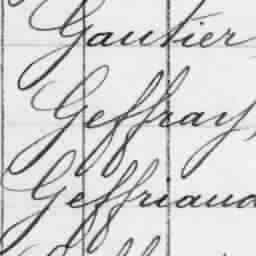 Gautier
Geffray
Geffriaud